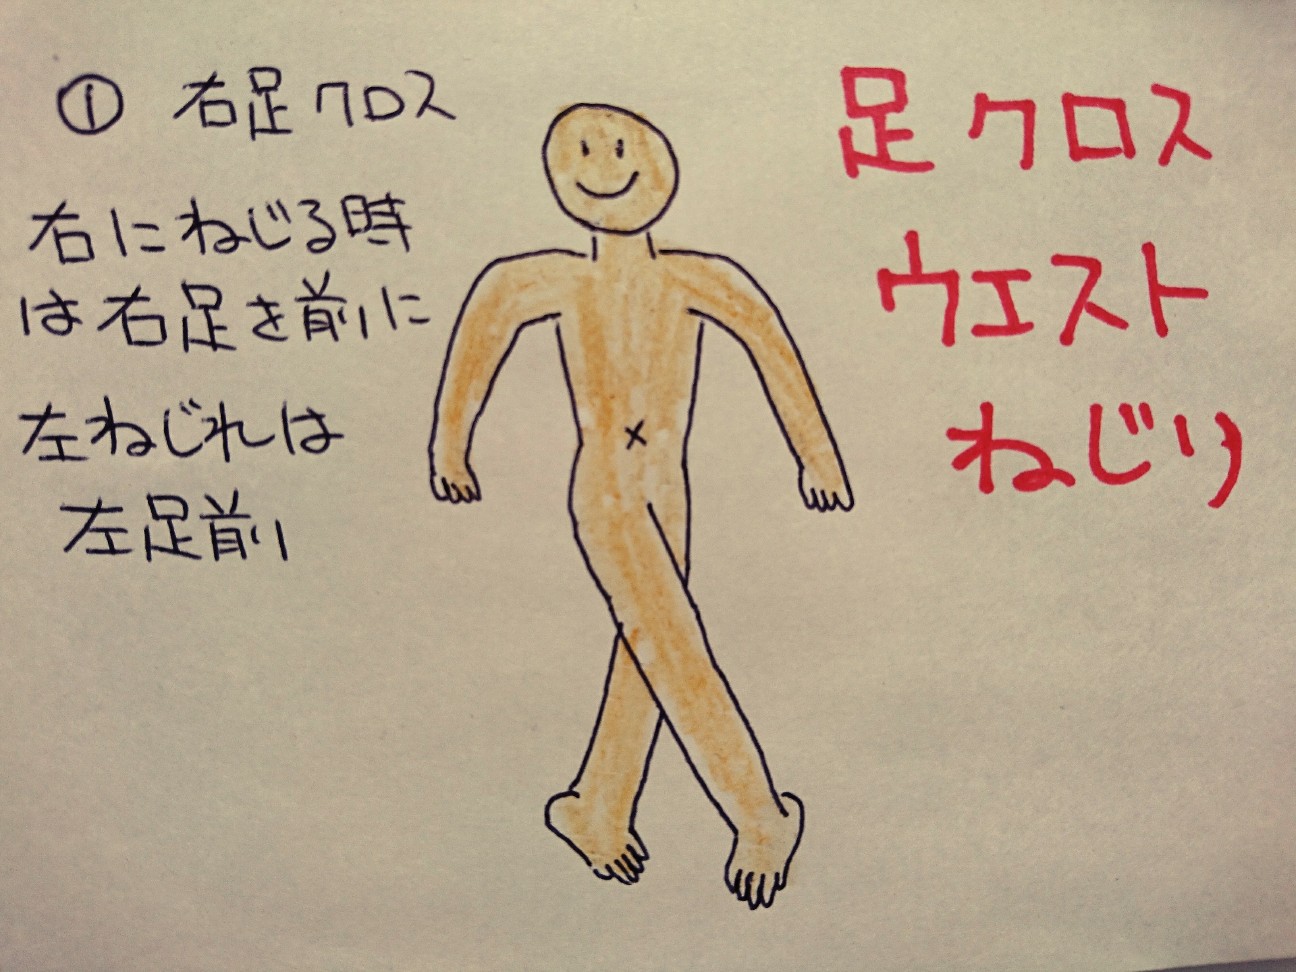 ① 右足クロス
右にねじる時
は右足を前に
左ねじれは
左足前
足クロス
ウエスト
ねじり